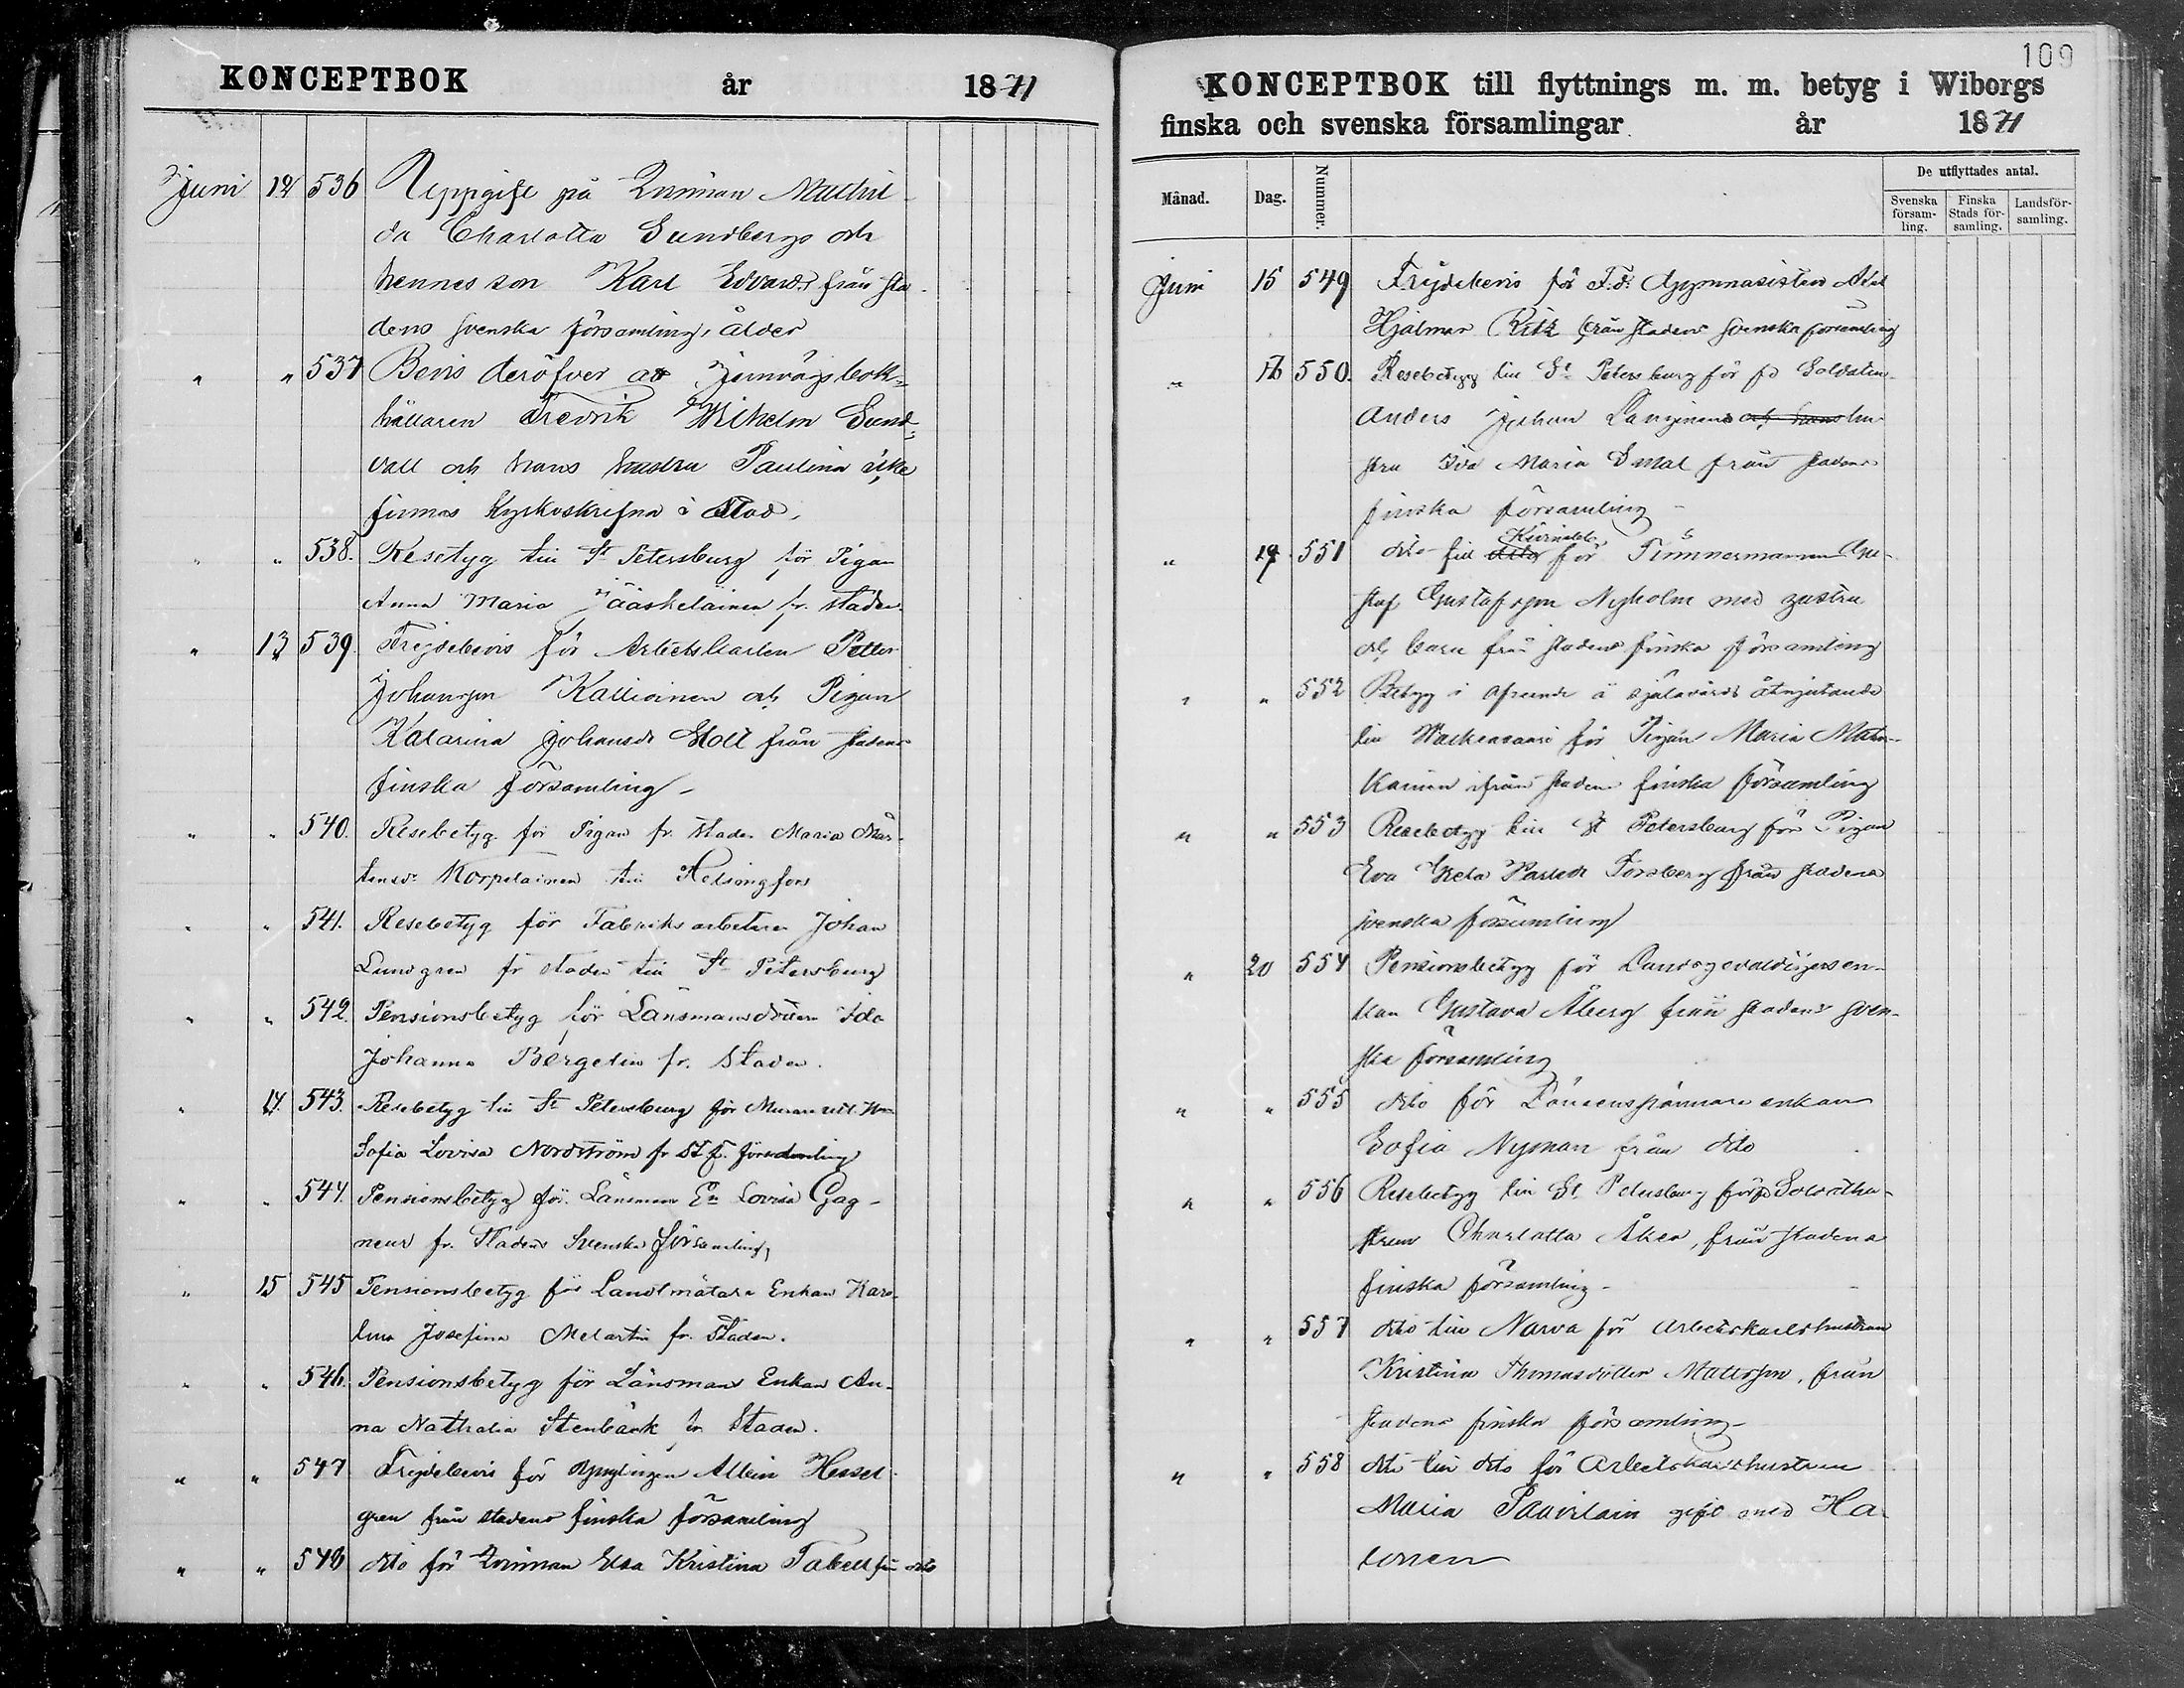 KONCEPTBOK år 1871
Juni 12 536 Uppgift på Qvinnan Mathil-
da Charlotta Sundbergs och
hennes son Karl Edvards från sta-
dens svenska församling, ålder
" " 537 Bevis deröfver att Jernvägsbok-
hållaren Fredrik Wilhelm Sund-
vall och hans hustru Paulina icke
finnas kyrkoskrifna i Stad.
" " 538. Resetyg till St Petersburg för Pigan
Anna Maria Jääskeläinen fr. staden
" 13 539. Frejdebevis för Arbetskarlen Petter
Johansson Kallioinen och Pigan
Katarina Johansdr Holt från stadens
finska församling -
" " 540. Resebetyg för Pigan fr. staden Maria Mår-
tensdr Korpelainen till Helsingfors
" " 541. Resebetyg för Fabriksarbetaren Johan
Lundgren fr staden till St Petersburg
" " 542. Pensionsbetyg för Länsmansdottern Ida
Johanna Bergelin fr. Staden.
" 14. 543. Resebetyg till St Petersburg för
Sofia Lovisa Nordström fr St F. församling
" " 544. Pensionsbetyg för Länsmans En Lovisa Gag-
neur fr. Stadens Svenska församling
" 15 545 Pensionsbetyg för Landtmätare Enkan Karo-
lina Josefina Melartin fr. Staden.
" " 546. Pensionsbetyg för Länsmans Enkan An-
na Nathalia Stenbäck fr Staden.
" " 547 Frejdebevis för Ynglingen Albin Hessel-
gren från stadens finska församling
" " 548 dito för Qvinnan Elsa Kristina Tabell från dito
109
KONCEPTBOK till flyttnings m. m. betyg i Wiborgs
finska och svenska församlingar år 1871
Månad. Dag. Nummer. De utflyttades antal.
Svenska försam-ling. Finska Stads för-samling. Landsför-samling.
Juni 15 549 Frejdebevis för F.d. Gymnasisten Axel
Hjalmar Ritz från stadens svenska församling
" 16 550. Resebetyg till St Petersburg för fd Soldaten
Anders Johan Langinen och hans hu-
stru Eva Maria från stadens
finska församling -
" 19 551 dito till dito Kivinebb för Timmermannen Gu-
staf Gustafsson Nyholm med hustru
och barn från stadens finska församling
" " 552 Betyg i afseende å själavårds åtnjutande
till Walkeasaari för Pigan Maria
från stadens finska församling
" " 553 Resebetyg till St Petersburg för Pigan
Eva Greta Karlsdr Forsberg från stadens
svenska församling
" 20 554 Pensionsbetyg för
kan Gustava Åberg från stadens sven-
ska församling
" " 555 dito för enkan
Sofia Nyman från dito
" " 556 Resebetyg till St Petersburg för fd Soldathu-
strun Charlotta Åker, från stadens
finska församling -
" " 557 dito till Narva för Arbetskarlshustrun
Kristina Thomasdotter Mattsson, från
stadens finska församling -
" " 558 dito till dito för Arbetskarlshustrun
Maria Paavilain gift med Ha-
lonen